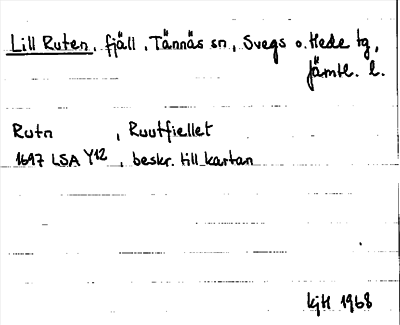 Lill Ruten, fjäll, Tännäs sn, Svegs o. Hede tg,
Jämtl. l.
Rutn , Ruutfiellet
1697 LSA Y12, beskr. till kartan
KjH 1968